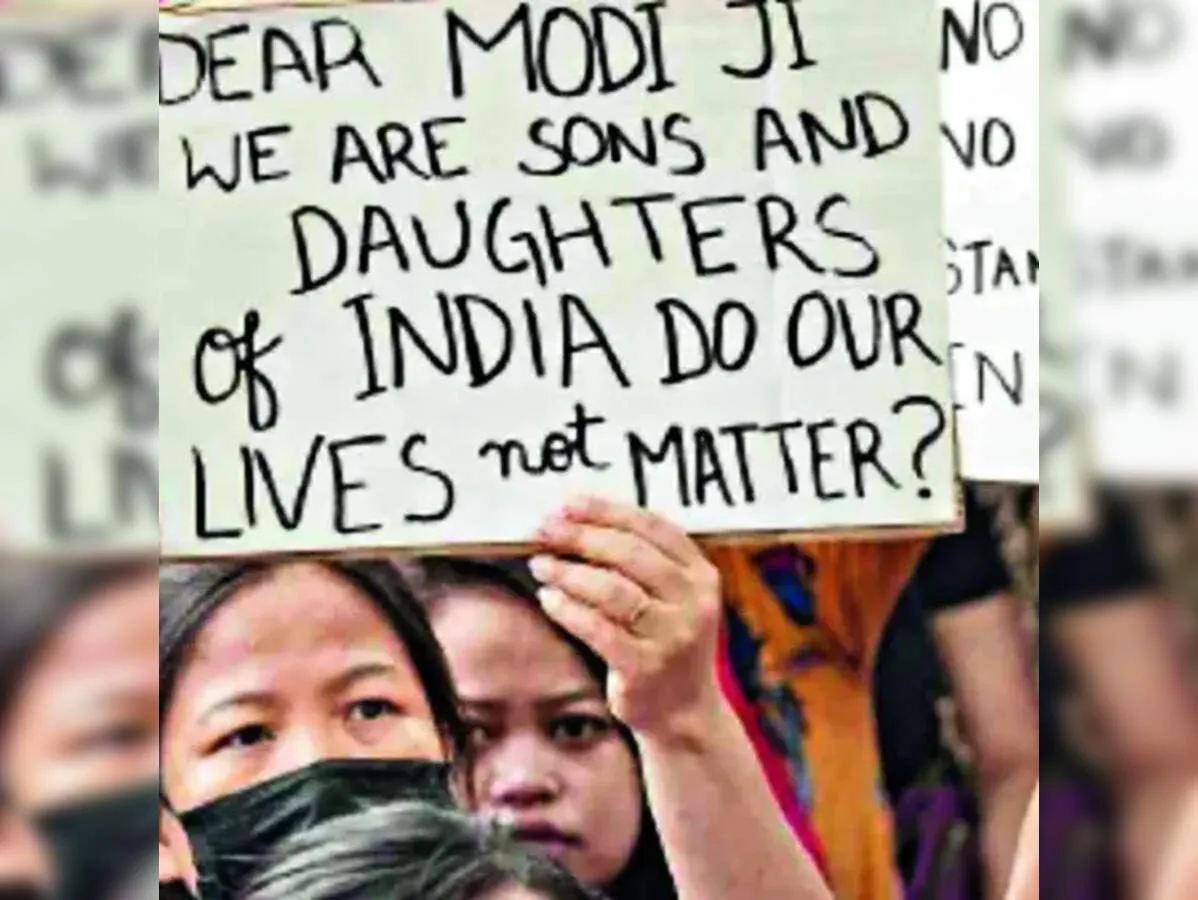 DEAR MODI JI
WE ARE SONS AND
DAUGHTERS
of INDIA DO OUR
LIVES not MATTER?
NO
STAN
IN